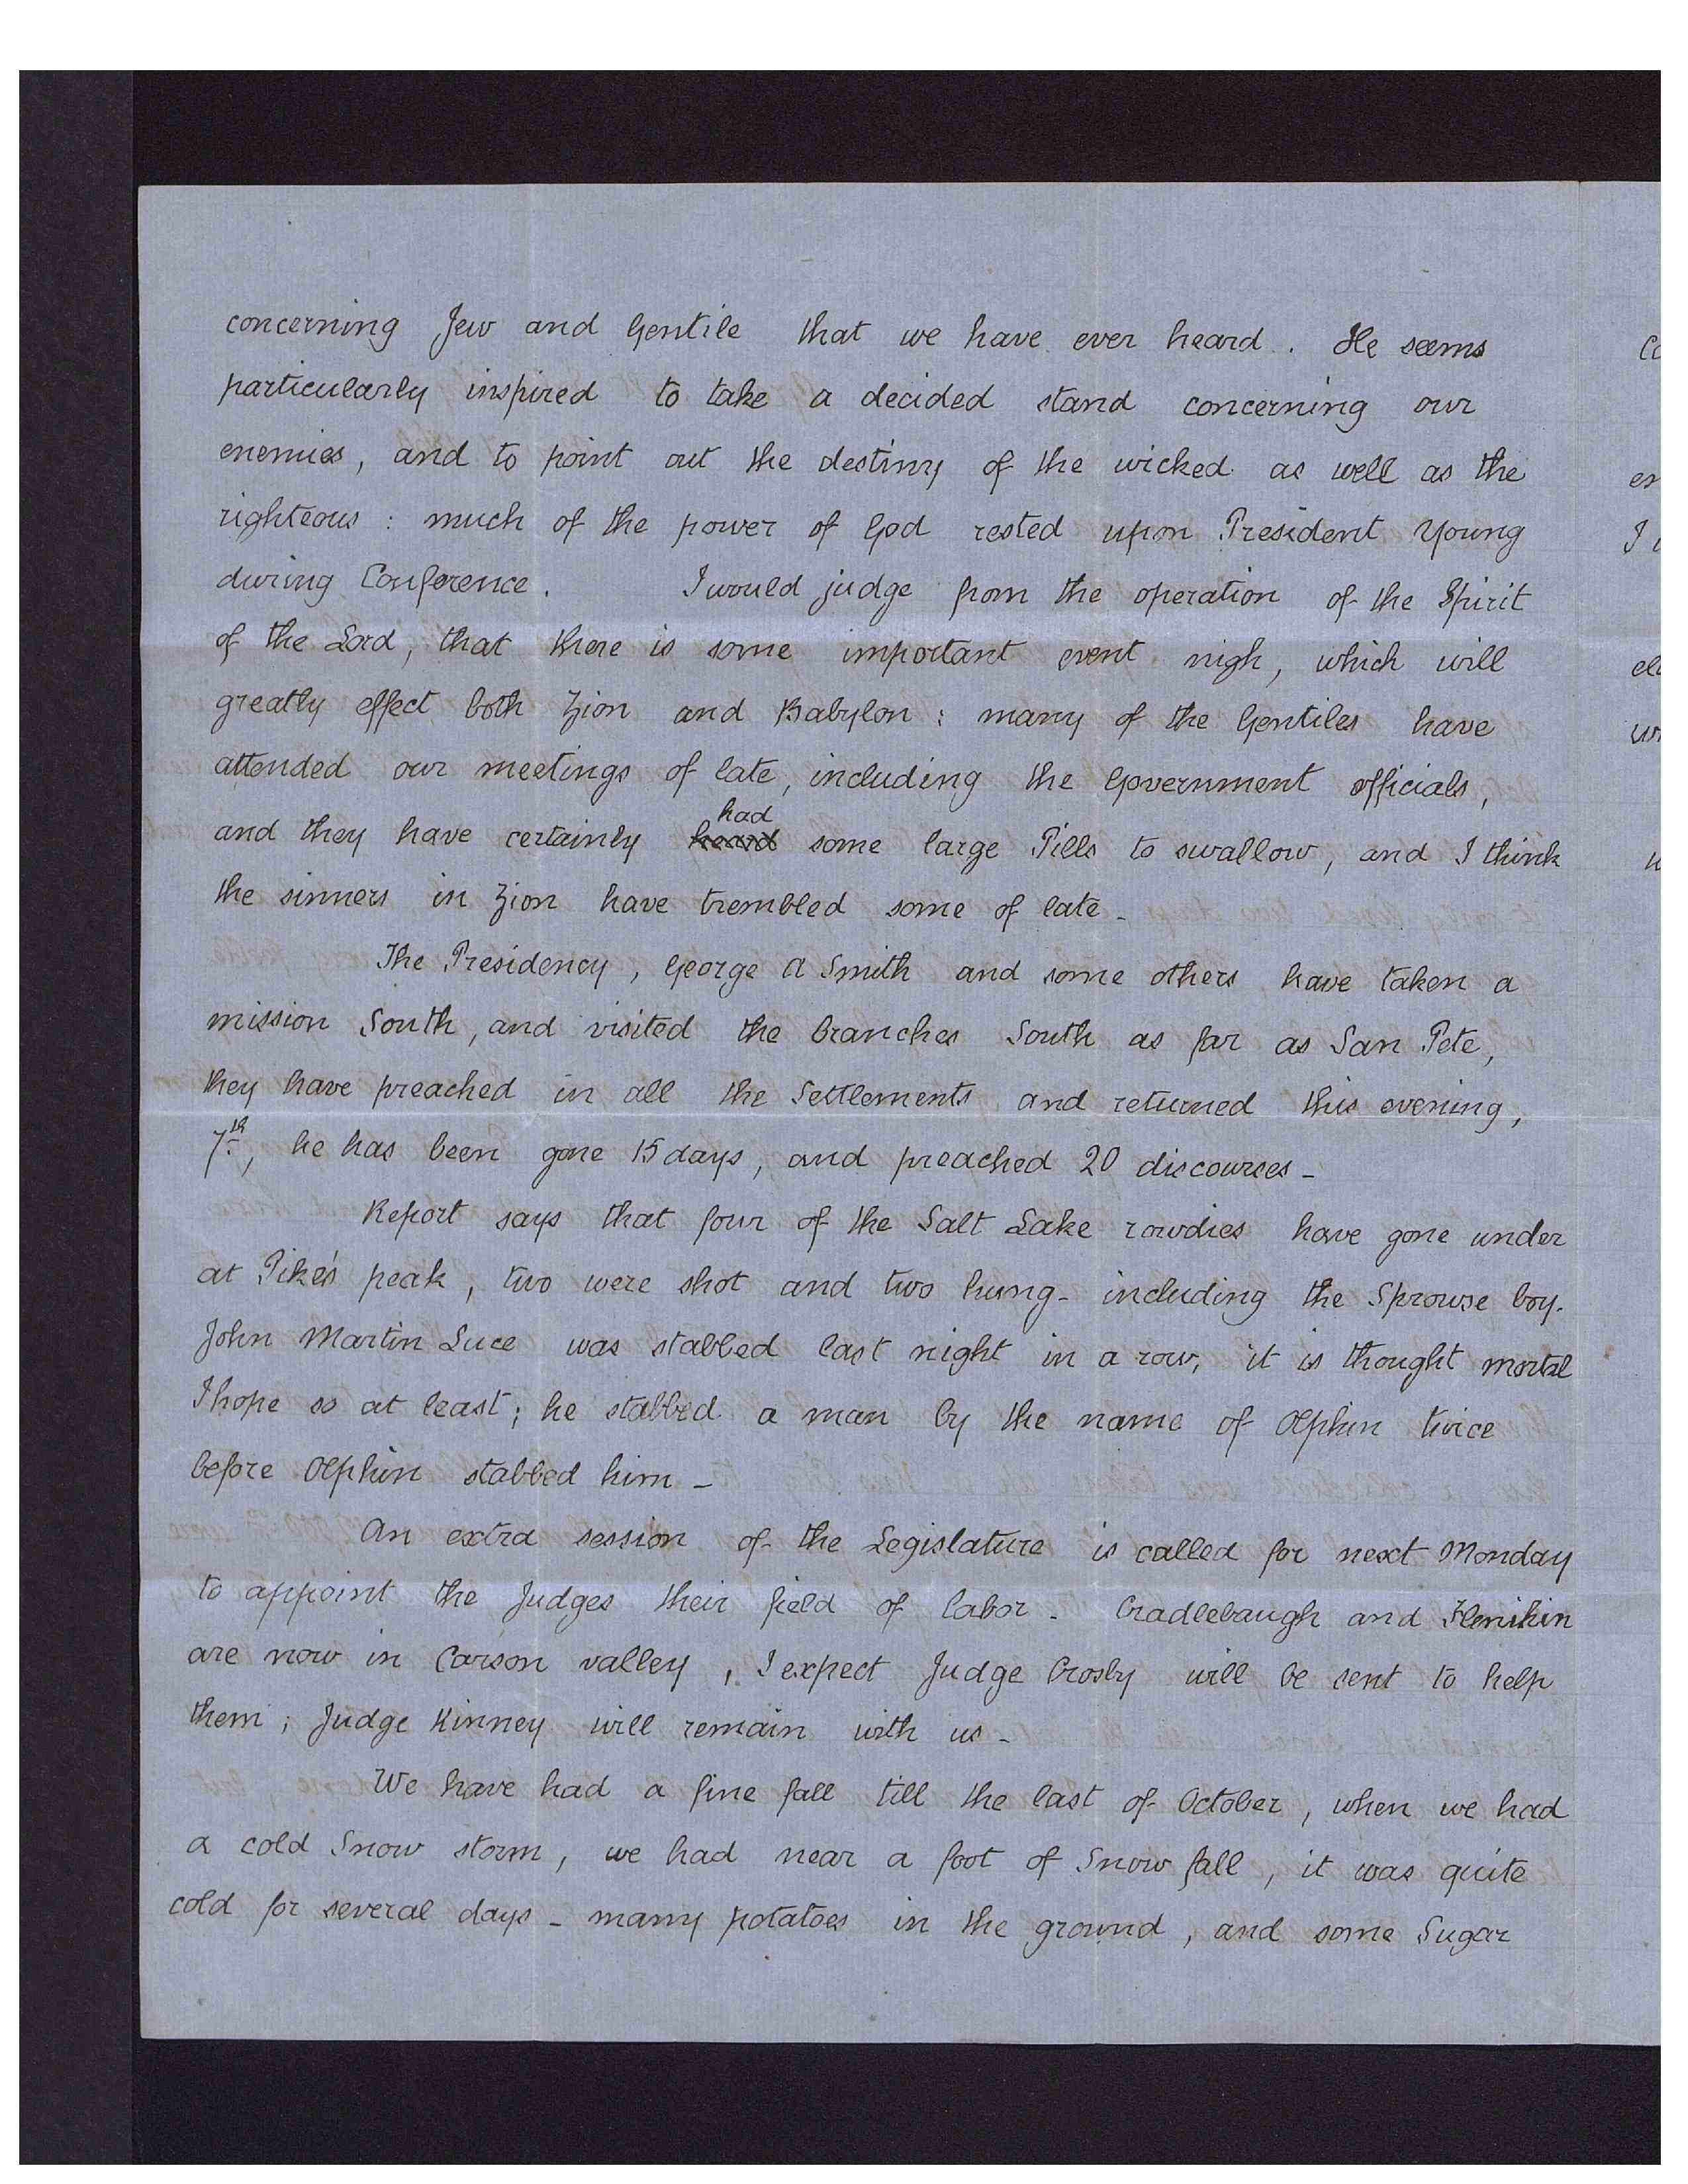 concerning Jew and Gentile that we have ever heard. He seems
particularly inspired to take a decided stand concerning our
enemies, and to point out the destiny of the wicked as well as the
righteous : much of the power of God rested upon President Young
during Conference. I would judge from the operation of the Spirit
of the Lord, that there is some important event nigh, which will
greatly effect both Zion and Babylon : many of the Gentiles have
attended our meetings of late, including the Government officials,
had
and they have certainly heard some large Pills to swallow, and I think
the sinners in Zion have trembled some of late -
The Presidency, George A Smith and some others have taken a
mission South, and visited the branches South as far as San Pete,
they have preached in all the Settlements and returned this evening,
7th, he has been gone 15 days, and preached 20 discourses -
Report says that four of the Salt Lake rowdies have gone under
at Pike's peak, two were shot and two hung - including the Sprouse boy.
John Martin Luce was stabbed last night in a row, it is thought mortal
I hope so at least ; he stabbed a man by the name of Olphin twice
before Olphin stabbed him -
An extra session of the Legislature is called for next Monday
to appoint the Judges their field of labor - Cradlebaugh and Flenikin
are now in Carson valley, I expect Judge Crosby will be sent to help
them ; Judge Kinney will remain with us -
We have had a fine fall till the last of October, when we had
a cold Snow storm, we had near a foot of Snow fall, it was quite
cold for several days - many potatoes in the ground, and some Sugar